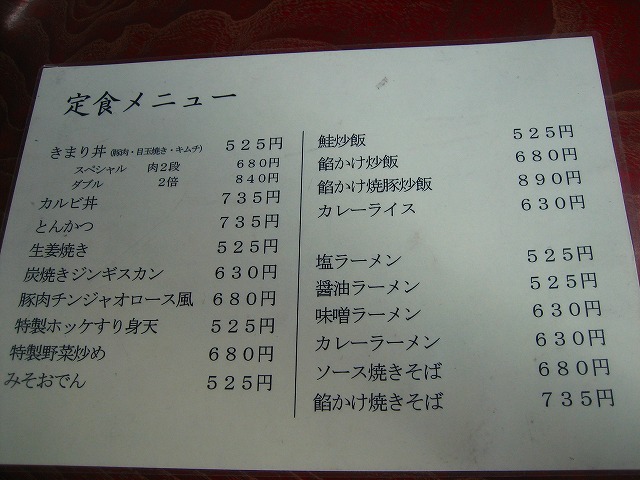 定食メニュー
きまり丼 (豚肉・目玉焼き・キムチ) 525円
スペシャル 肉2段 680円
ダブル 2倍 840円
カルビ丼 735円
とんかつ 735円
生姜焼き 525円
炭焼きジンギスカン 630円
豚肉チンジャオロース風 680円
特製ホッケすり身天 525円
特製野菜炒め 680円
みそおでん 525円
鮭炒飯 525円
餡かけ炒飯 680円
餡かけ焼豚炒飯 890円
カレーライス 630円
塩ラーメン 525円
醤油ラーメン 525円
味噌ラーメン 630円
カレーラーメン 630円
ソース焼きそば 680円
餡かけ焼きそば 735円